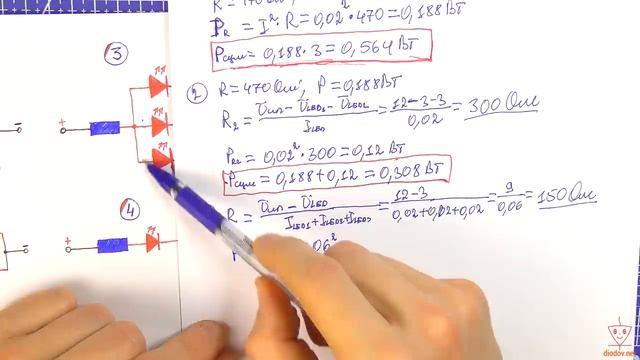 P_R = I² · R = 0,02² · 470 = 0,188 Вт
Pсум = 0,188 · 3 = 0,564 Вт
② R = 470 Ом; P = 0,188 Вт
R₂ = (Uип − U_LED1 − U_LED2) / I_LED = (12 − 3 − 3) / 0,02 = 300 Ом
P_R2 = 0,02² · 300 = 0,12 Вт
Pсум = 0,188 + 0,12 = 0,308 Вт
R = (Uип − U_LED) / (I_LED1 + I_LED2 + I_LED3) = (12 − 3) / (0,02 + 0,02 + 0,02) = 9 / 0,06 = 150 Ом
06²
③
+
④
+
diodov.net